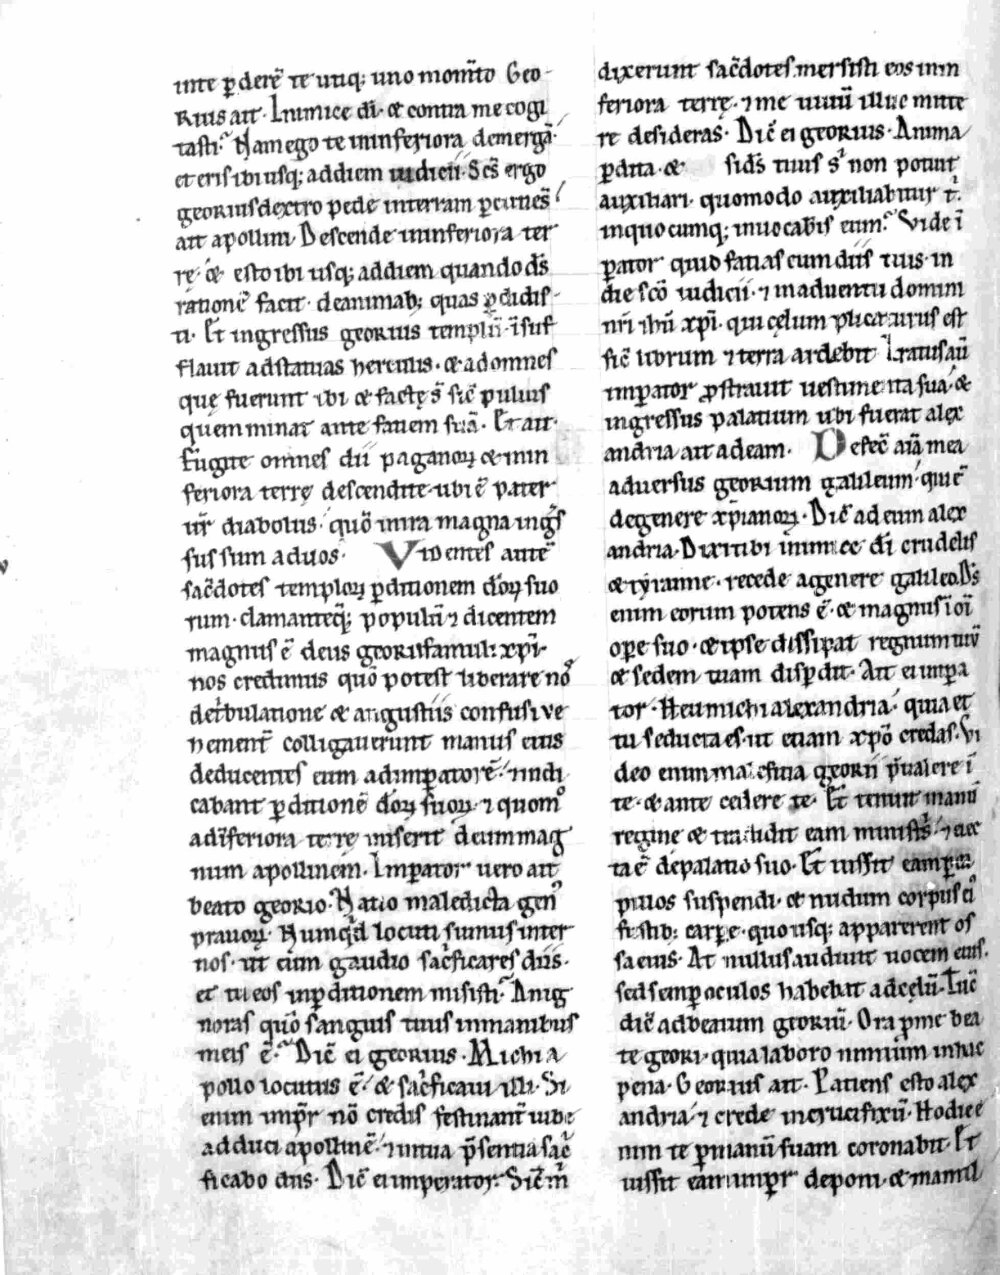 inte ꝑderē te utiq; uno momīto Geo-
rius ait. Inimice dī. & contra me cogi
tasti? Nam ego te in inferiora demergā.
et eris ibi usq; ad diem iudicii. Scs̄ ergo
georius dextro pede in terram ꝑcutiens̄
ait apollini. Descende in inferiora ter
rę. & esto ibi usq; ad diem quando ds̄
rationē facit de animab; quas ꝑdidis-
ti. Et ingressus georius templū īsuf
flauit ad statuas herculis. & ad omnes
quę fuerunt ibi & factę s̄ sic̄ puluis
quem minat ante faciem suā. Et ait.
Fugite omnes dii paganoꝝ & in in
feriora terrę descendite. ubi ē pater
ur̄ diabolus. quō in ira magna ings̄
sus sum ad uos. Videntes autē
sac̄dotes temploꝝ ꝑditionem doꝝ suo
rum. clamanteq̄; populū ⁊ dicentem
magnus ē deus georii famuli xp̄i.
nos credimus quō potest liberare no᷒
de t̄bulatione & angustiis confusi ve
hement̄ colligauerunt manus eius
deducentes eum ad imꝑatorē. ⁊ indi
cabant ꝑditionē doꝝ suoꝝ. ⁊ quom°
ad īferiora terrę miserit deum mag
num apollinem. Imꝑator uero ait
beato georio. Natio maledicta gen᷒
prauoꝝ. Numqd̄ locuti sumus inter
nos. ut cum gaudio sac̄ficares diis.
et tu eos in ꝑditionem misisti? An ig
noras quō sanguis tuus in manibus
meis ē? Dic̄ ei georius. Michi a
pollo locutus ē. & sac̄ficaui illi. Si
enim impr̄ nō credis festinant̄ iube
adduci apollinē. ⁊ in tua p̄sentia sac̄
ficabo diis. Dic̄ ei imperator. Sic̄ m̄
dixerunt sac̄dotes. mersisti eos in in
feriora terrę. ⁊ me uiuū illuc mitte
re desideras. Dic̄ ei georius. Anima
ꝑdita. & si ds̄ tuus s᷒ non potuit
auxiliari. quomodo auxiliabitur t᷒
in quocumq; inuocabis eum? Vide ī
ꝑator quid facias cum diis tuis. in
die scō iudicii. ⁊ in aduentu domini
nr̄i ih̄u xp̄i. qui cęlum plicaturus est
sic̄ librum ⁊ terra ardebit. Iratus aū
imꝑator ꝓstrauit uestimenta sua. &
ingressus palatium ubi fuerat alex
andria ait ad eam. Defec̄ aīa mea
aduersus georium galileum. qui ē
de genere xp̄ianoꝝ. Dic̄ ad eum alex
andria. Dixi tibi inimice dī crudelis
& tyranne. recede a genere galileo. Ds̄
enim eorum potens ē. & magnus ī oī
oꝑe suo. & ipse dissipat regnum tuū
& sedem tuam disꝑdit. Ait ei impa
tor. Heu michi alexandria. quia et
tu seducta es. ut etiam xp̄o credas. Vi
deo enim maleficia georii p̄ualere ī
te. & ante cedere te. Et tenuit manū
regine & tradidit eam minists̄. ⁊ eiec
ta ē de palatio suo. Et iussit eam ꝑ ca
pillos suspendi. & nudum corpus ei᷒
fustib; carꝑe. quo usq; apparerent os
sa eius. At nullus audiuit uocem eius.
sed semꝑ oculos habebat ad cęlū. Tūc
dic̄ ad beatum georiū. Ora ꝑ me bea
te geori. quia laboro nimium in hac
pena. Georius ait. Patiens esto alex
andria. ⁊ crede in crucifixū. Hodie e
nim te ꝑ manū suam coronabit. Et
iussit eam imꝑr deponi. & mamil